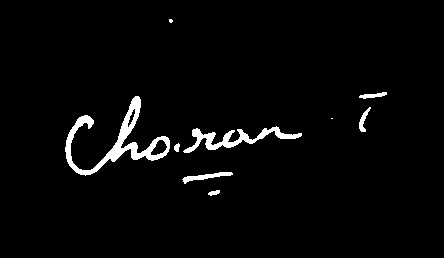 Charan T